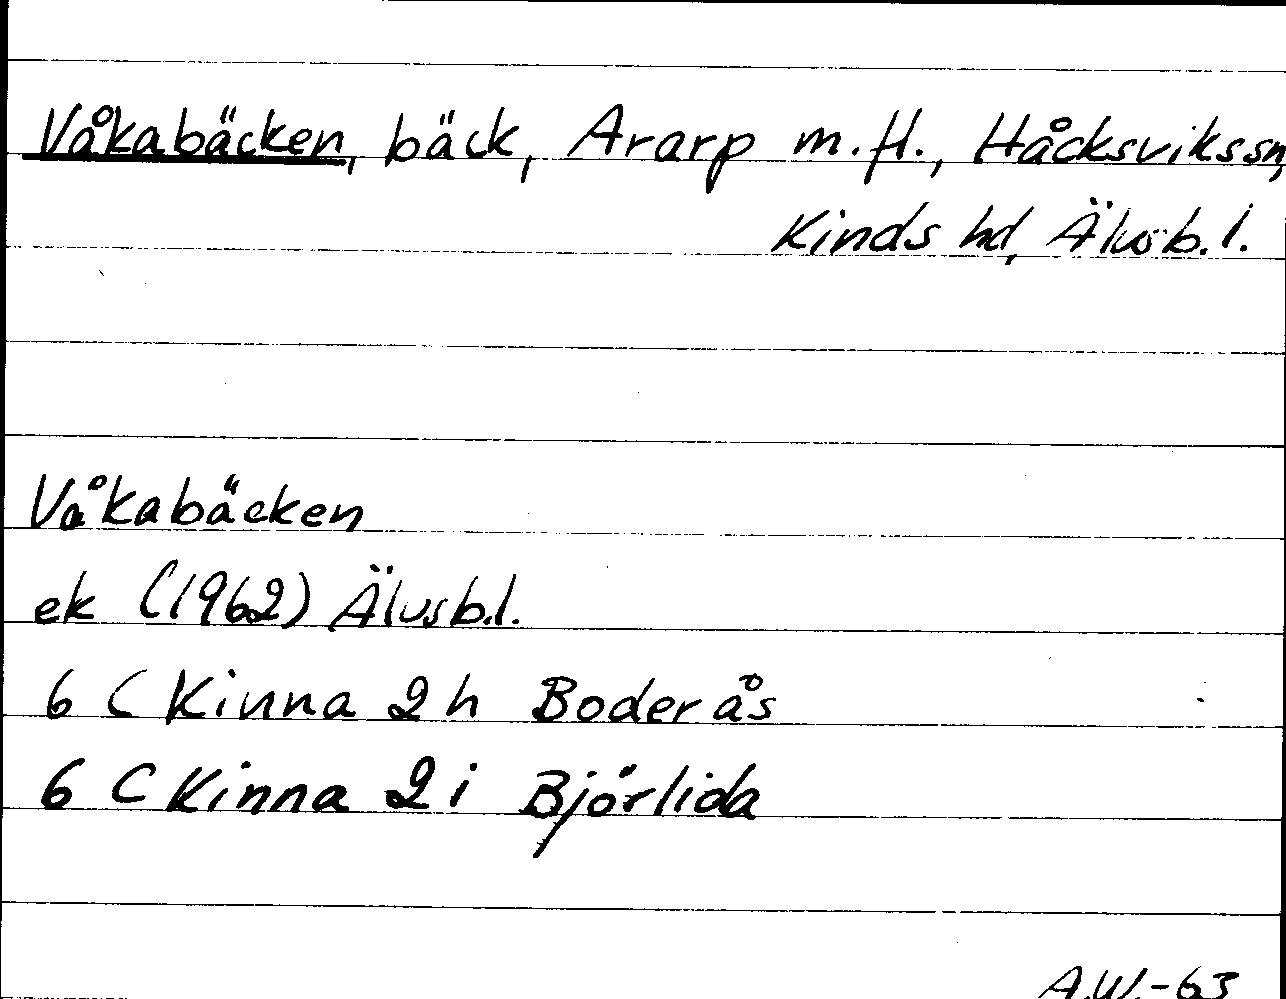 Våkabäcken, bäck, Ararp m.fl., Håcksviks sn,
Kinds hd, Älvsb.l.
Våkabäcken
ek (1962) Älvsb.l.
6 C Kinna 2h Boderås
6 C Kinna 2i Björlida
A.W.-63